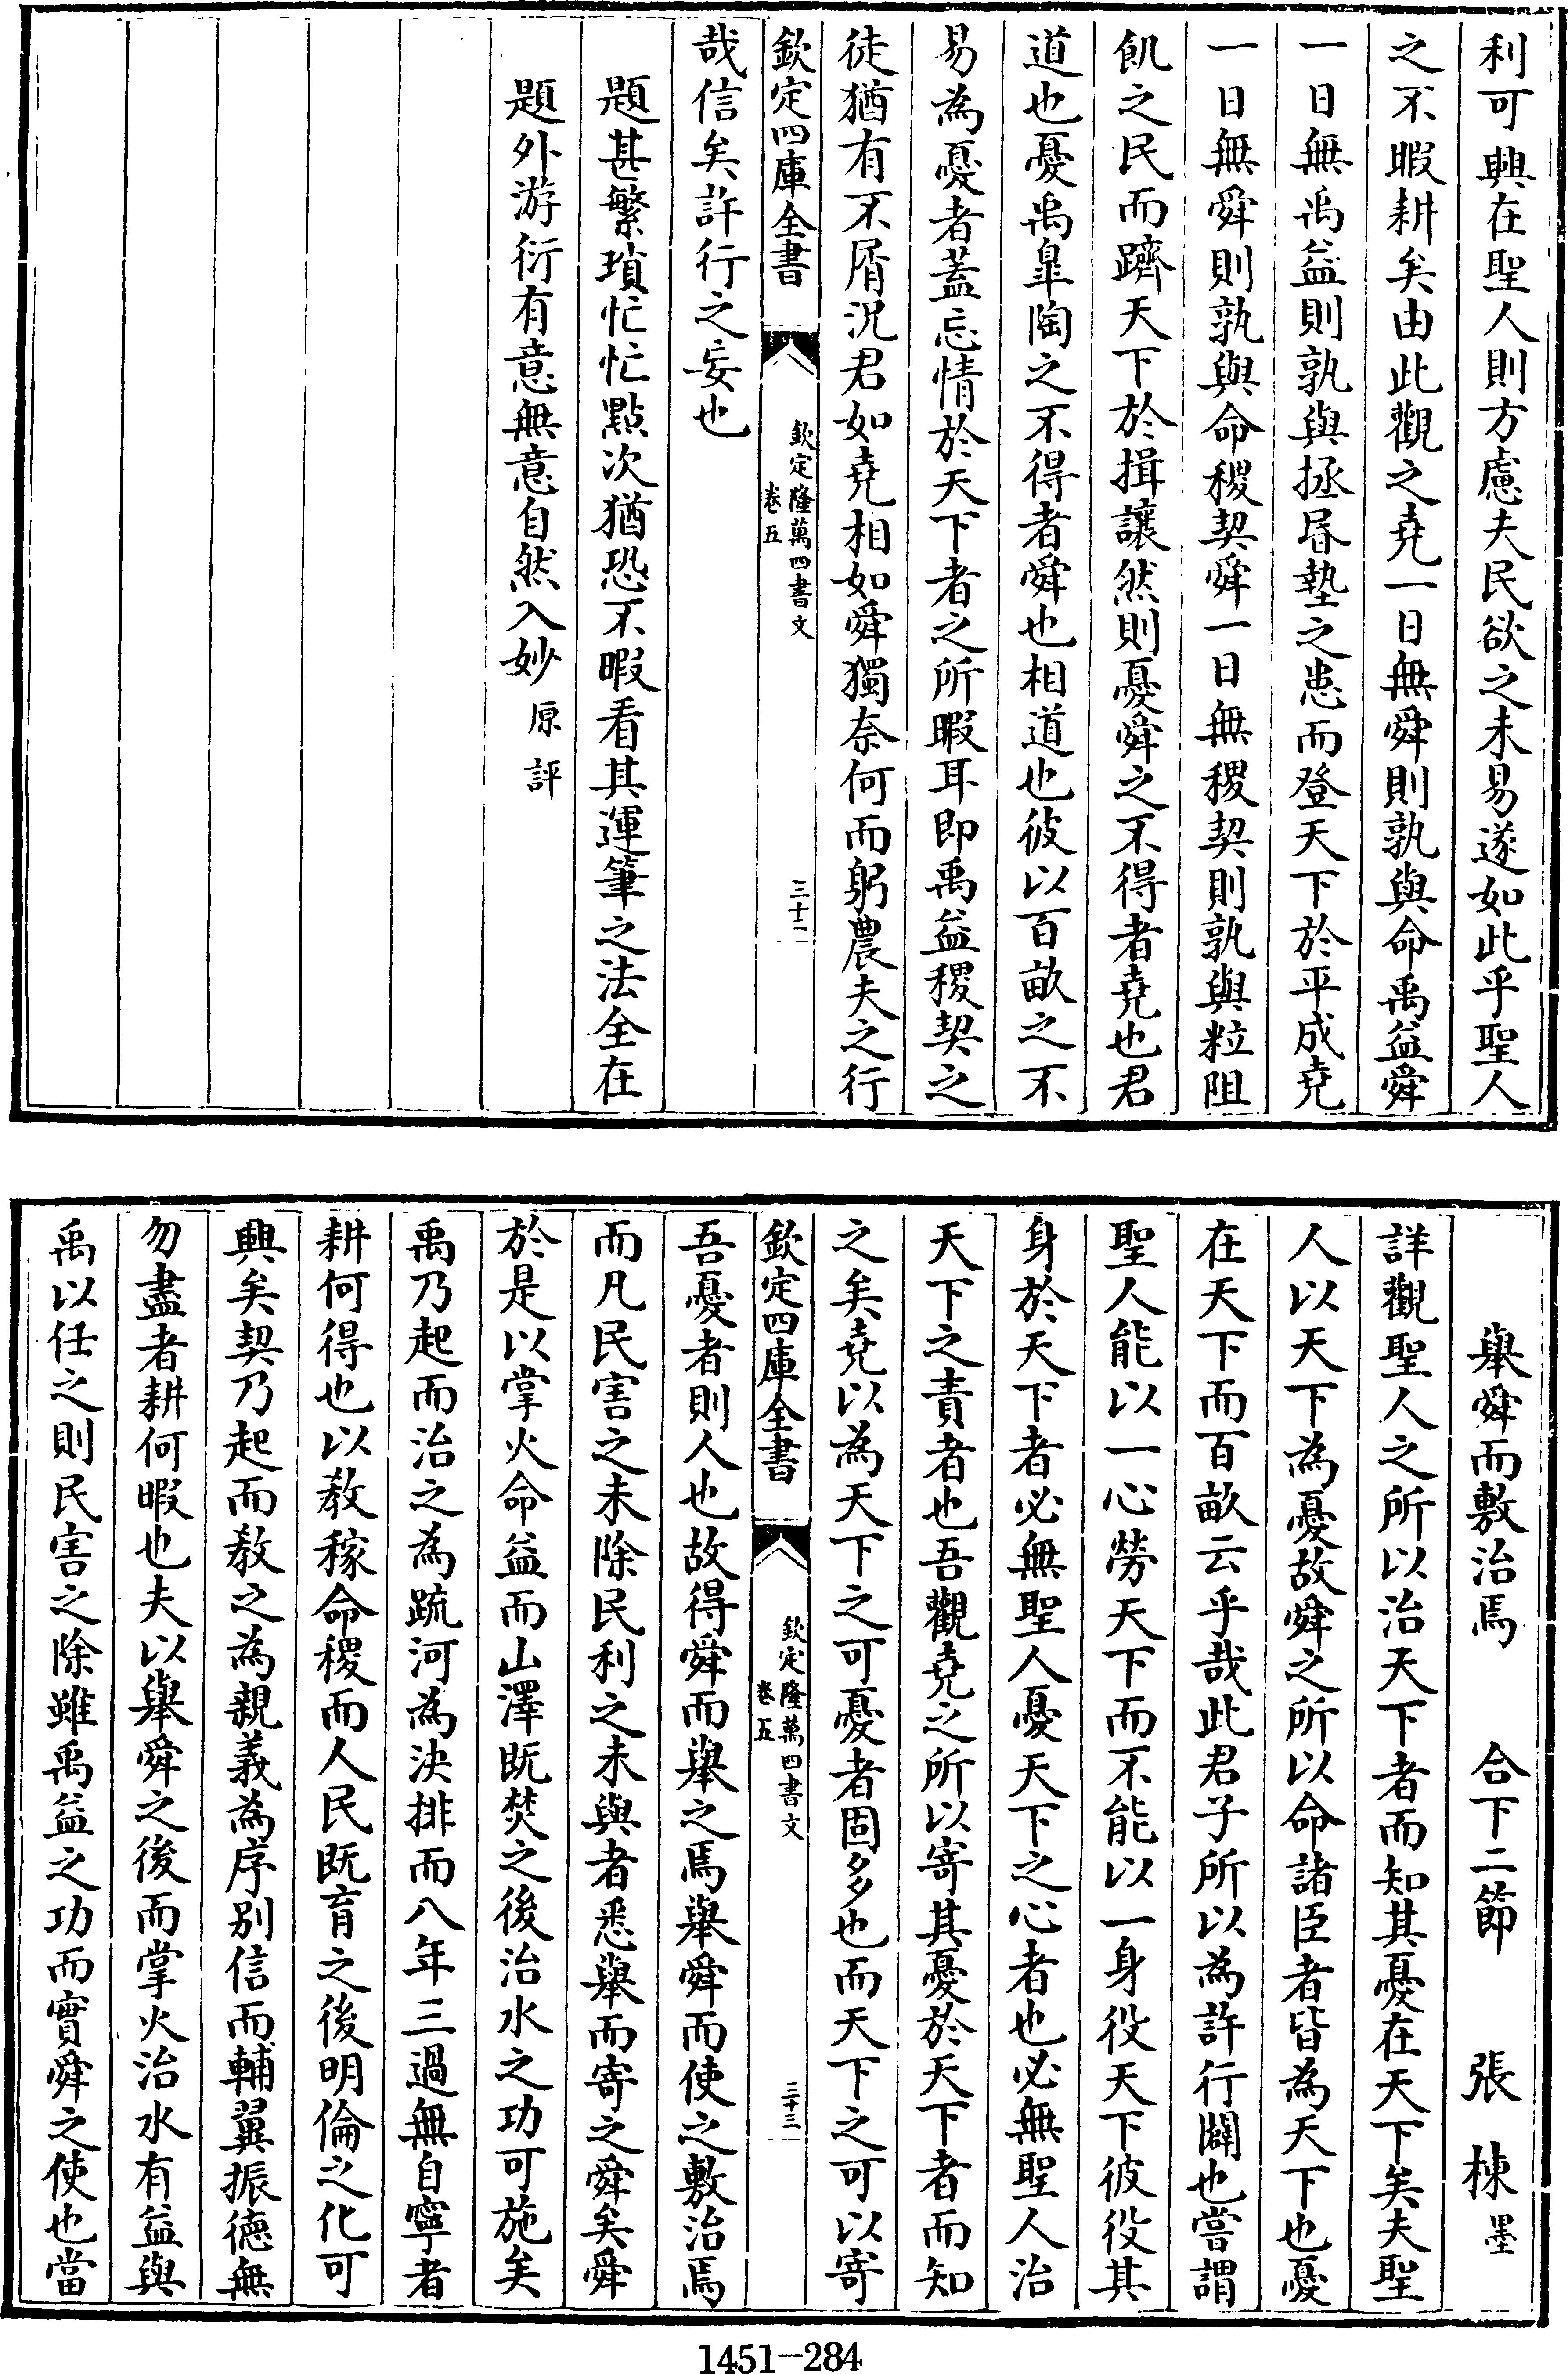 利可興在聖人則方慮夫民欲之未易遂如此乎聖人
之不暇耕矣由此觀之堯一日無舜則孰與命禹益舜
一日無禹益則孰與拯昬墊之患而登天下於平成堯
一日無舜則孰與命稷契舜一日無稷契則孰與粒阻
飢之民而躋天下於揖讓然則憂舜之不得者堯也君
道也憂禹臯陶之不得者舜也相道也彼以百畝之不
易為憂者蓋忘情於天下者之所暇耳即禹益稷契之
徒猶有不屑況君如堯相如舜獨奈何而躬農夫之行
欽定四庫全書
欽定隆萬四書文
卷五
三十二
哉信矣許行之妄也
題甚繁瑣忙忙點次猶恐不暇看其運筆之法全在
題外游衍有意無意自然入妙原評
舉舜而敷治焉 合下二節 張棟墨
詳觀聖人之所以治天下者而知其憂在天下矣夫聖
人以天下為憂故舜之所以命諸臣者皆為天下也憂
在天下而百畝云乎哉此君子所以為許行闢也嘗謂
聖人能以一心勞天下而不能以一身役天下彼役其
身於天下者必無聖人憂天下之心者也必無聖人治
天下之責者也吾觀堯之所以寄其憂於天下者而知
之矣堯以為天下之可憂者固多也而天下之可以寄
欽定四庫全書
欽定隆萬四書文
卷五
三十三
吾憂者則人也故得舜而舉之焉舉舜而使之敷治焉
而凡民害之未除民利之未與者悉舉而寄之舜矣舜
於是以掌火命益而山澤既焚之後治水之功可施矣
禹乃起而治之為疏河為決排而八年三過無自寧者
耕何得也以教稼命稷而人民既育之後明倫之化可
興矣契乃起而教之為親義為序別信而輔翼振德無
勿盡者耕何暇也夫以舉舜之後而掌火治水有益與
禹以任之則民害之除雖禹益之功而實舜之使也當
1451-284